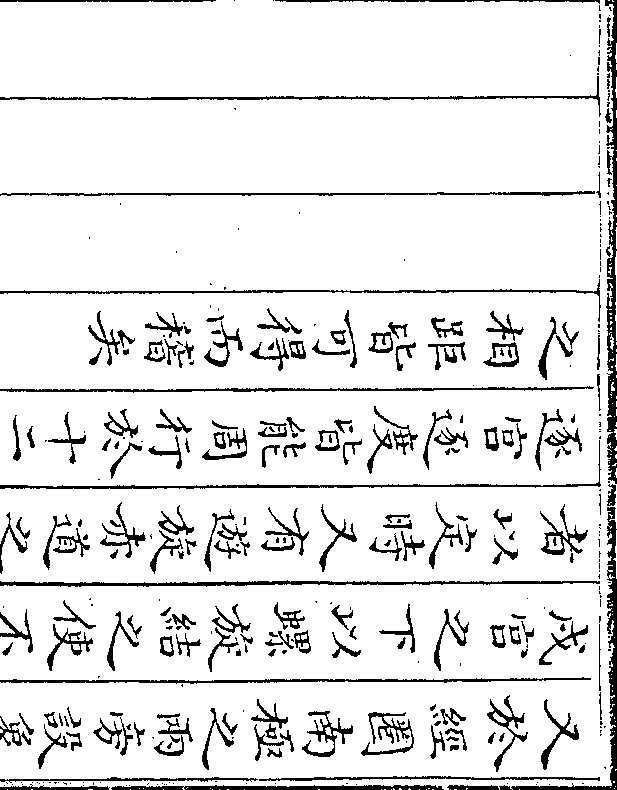 又於經圈南極之兩旁設
戌宮之下以螺旋結之使不
者以定時又有遊旋赤道之
逐宮逐度皆能周行於十二
之相距皆可得而稽矣